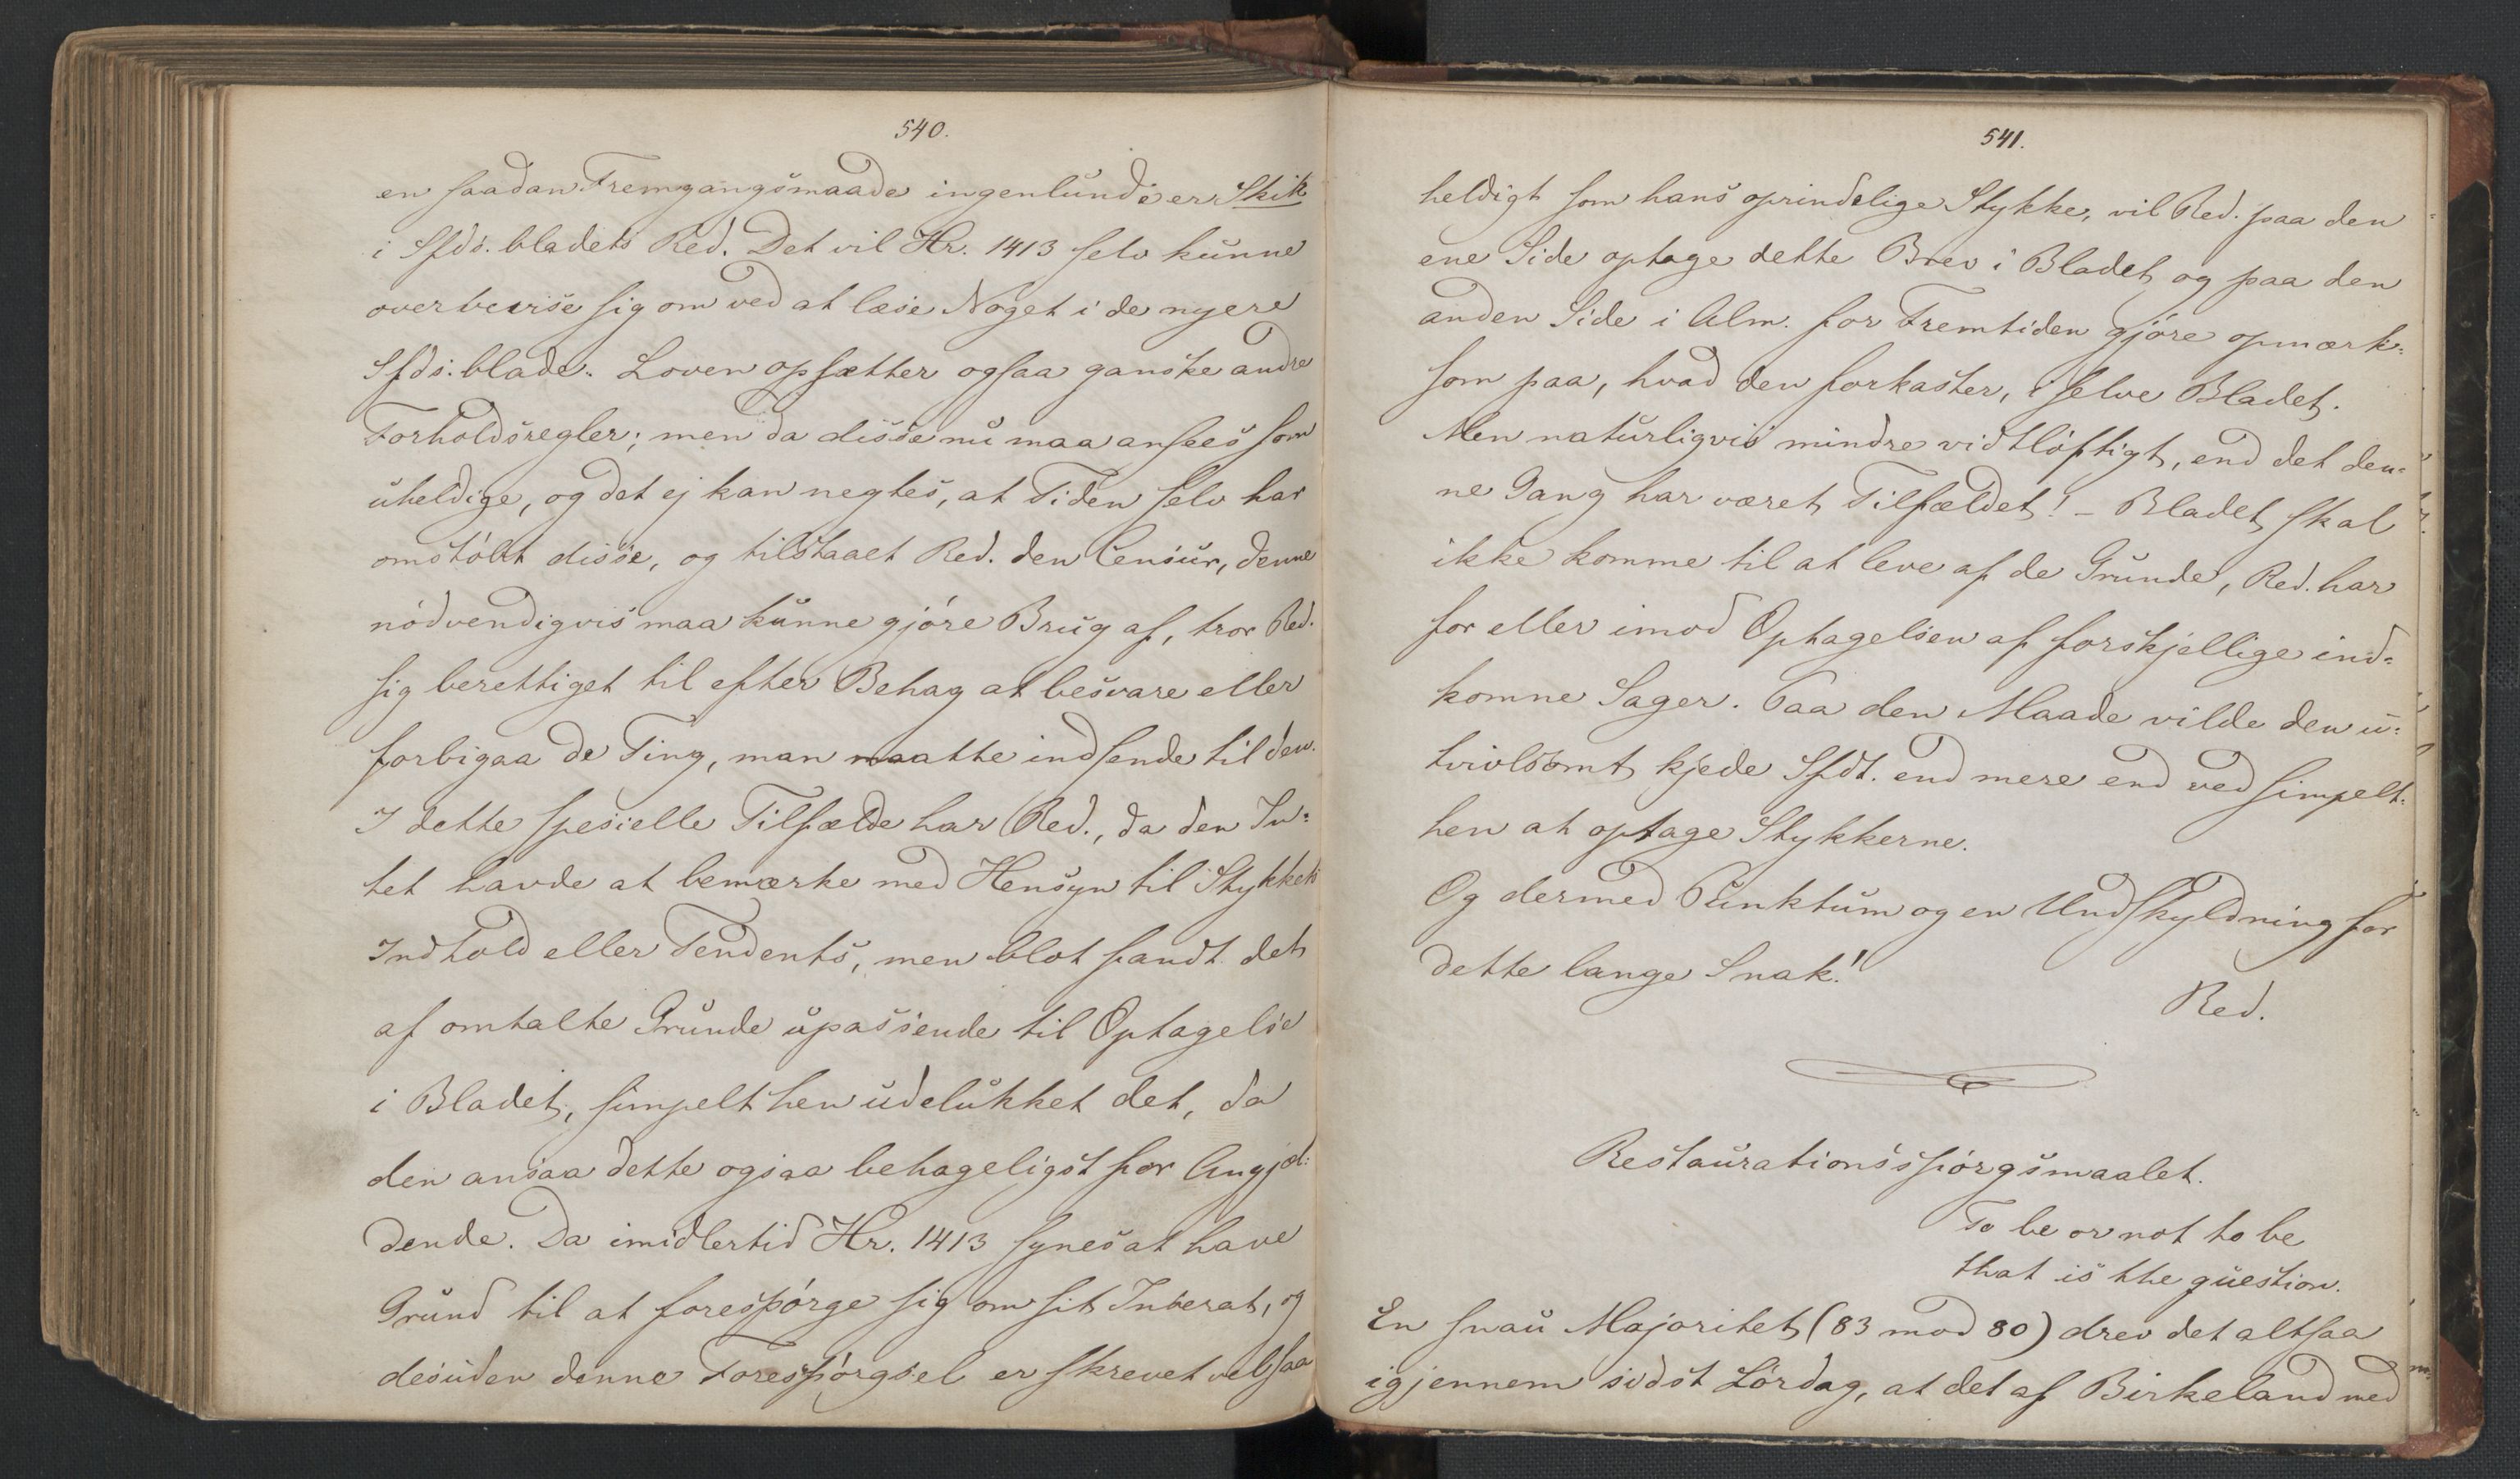 540.
en saadan Fremgangsmaade ingenlunde er Skik
i Sfds. bladets Red. Det vil Hr. 1413 selv kunne
overbevise sig om ved at læse Noget i de nyere
Sfds. blade. Loven opsætter ogsaa ganske andre
Forholdsregler; men da disse nu maa ansees som
uheldige, og det ej kan negtes, at Tiden selv har
omstöbt disse, og tilstaaet Red. den Censur, denne
nödvendigvis maa kunne gjöre Brug af, tror Red.
sig berettiget til efter Behag at besvare eller
forbigaa de Ting, man maatte indsende til den.
I dette spesielle Tilfælde har Red., da den In-
tet havde at bemærke med Hensyn til Stykkets
Indhold eller Tendents, men blot fandt det
af omtalte Grunde upassende til Optagelse
i Bladet, simpelt hen udelukket det, da
den ansaa dette ogsaa behageligst for Angjæl-
dende. Da imidlertid Hr. 1413 synes at have
Grund til at forespörge sig om sit Inserat, og
desuden denne Forespörgsel er skrevet velsaa
541.
heldigt som hans oprindelige Stykke, vil Red. paa den
ene Side optage dette Brev i Bladet og paa den
anden Side i Alm. for Fremtiden gjöre opmærk-
som paa, hvad den forkaster, i selve Bladet.
Men naturligvis mindre vidtlöftigt, end det den-
ne Gang har været Tilfældet! – Bladet skal
ikke komme til at leve af de Grunde, Red. har
for eller imod Optagelsen af forskjellige ind-
komne Sager. Paa den Maade vilde den u-
tvivlsomt kjede Sfdt. end mere end ved simpelt-
hen at optage Stykkerne.
Og dermed Punktum og en Undskyldning for
dette lange Snak!
Red.
Restaurationsspörgsmaalet.
To be or not to be
that is the question.
En snau Majoritet (83 mod 80) drev det altsaa
igjennem sidst Lördag, at det af Birkeland med